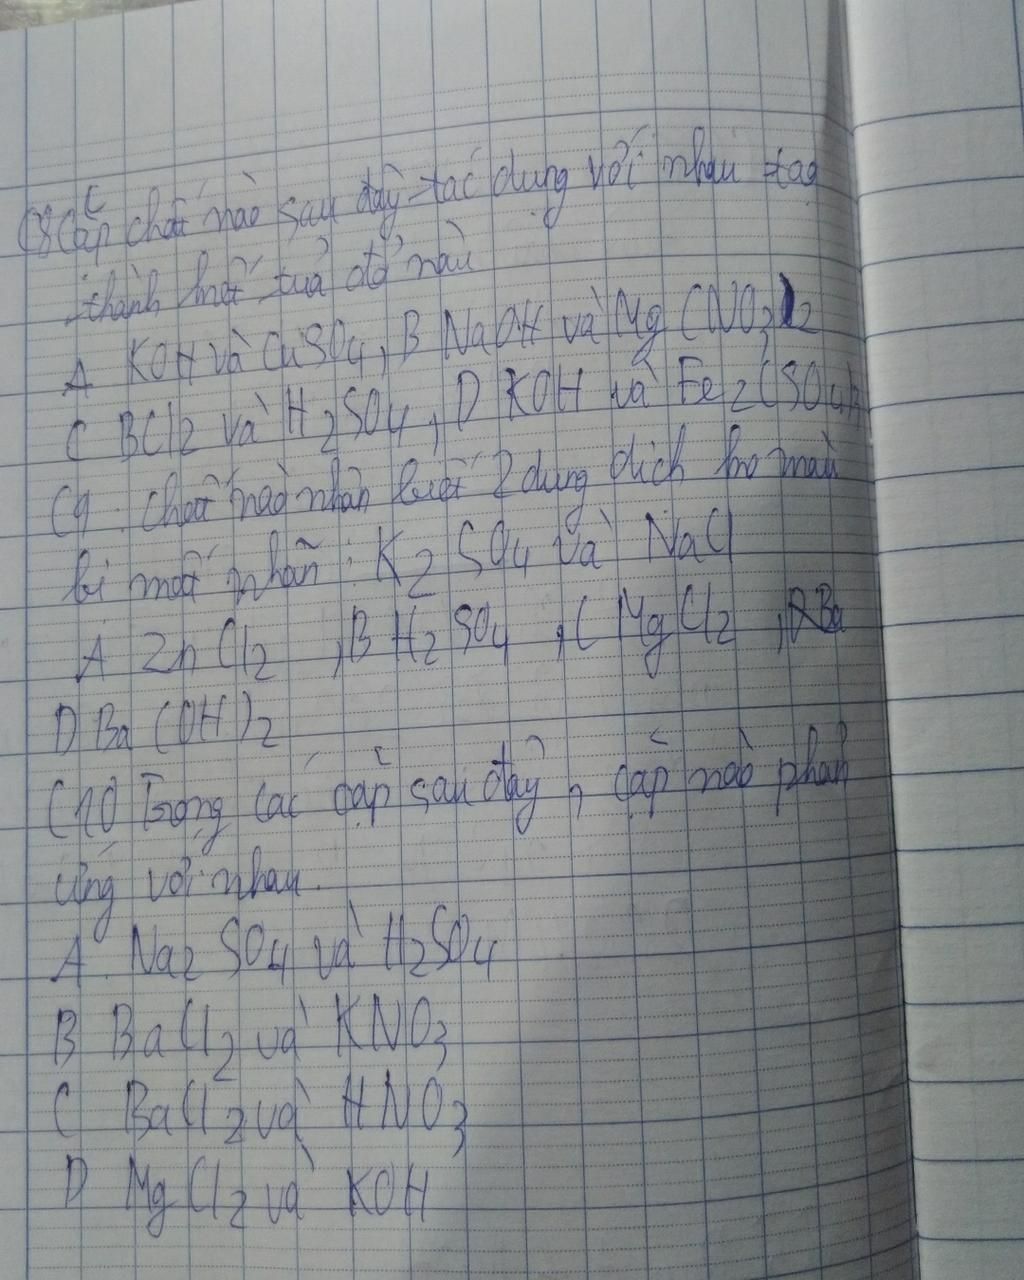 C8 Cặp chất nào sau đây tác dụng với nhau tạo
thành kết tủa đỏ nâu
A KOH và CuSO4, B NaOH và Mg(NO3)2
C BCl2 và H2SO4, D KOH và Fe2(SO4)3
C9. Chất nào nhận biết 2 dung dịch ko màu
bị mất nhãn: K2SO4 và NaCl
A ZnCl2, B H2SO4, C MgCl2,
D Ba(OH)2
C10 Trong các cặp sau đây, cặp nào phản
ứng với nhau.
A. Na2SO4 và H2SO4
B BaCl2 và KNO3
C BaCl2 và HNO3
D MgCl2 và KOH